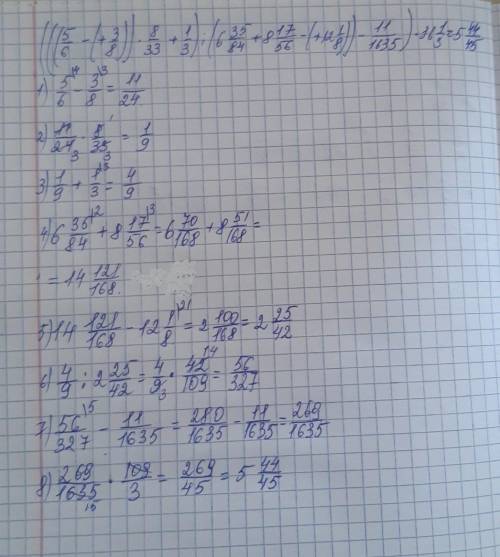 (((5/6 - (+3/8)) · 8/33 + 1/3) : (6 35/84 + 8 17/56 - (+12 1/8)) - 11/1635) · 36 1/3 = 5 44/45
1) 5/6 \4 - 3/8 \3 = 11/24
2) 11/24 3 · 8/33 3 = 1/9
3) 1/9 + 1/3 \3 = 4/9
4) 6 35/84 \2 + 8 17/56 \3 = 6 70/168 + 8 51/168 =
= 14 121/168.
5) 14 121/168 - 12 1/8 \21 = 2 100/168 = 2 25/42
6) 4/9 : 2 25/42 = 4/9 3 · 42 14/109 = 56/327
7) 56/327 \5 - 11/1635 = 280/1635 - 11/1635 = 269/1635
8) 269/1635 15 · 109/3 = 269/45 = 5 44/45